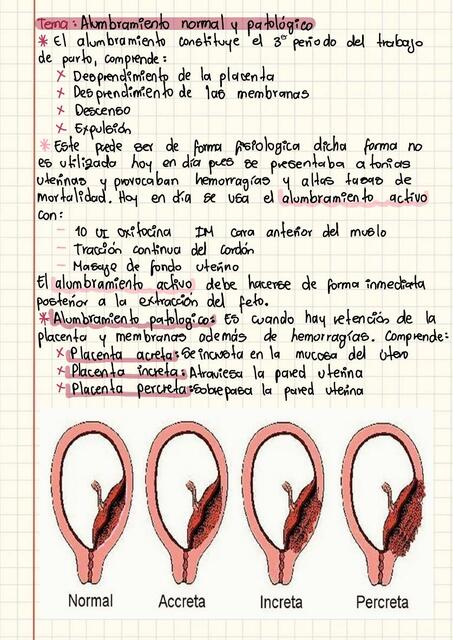 Tema: Alumbramiento normal y patológico
* El alumbramiento constituye el 3er periodo del trabajo
de parto, comprende:
x Desprendimiento de la placenta
x Desprendimiento de las membranas
x Descenso
x Expulsión
* Este puede ser de forma fisiologica dicha forma no
es utilizada hoy en día pues se presentaba atonias
uterinas y provocaban hemorragías y altas tasas de
mortalidad. Hoy en día se usa el alumbramiento activo
con:
- 10 UI oxitocina IM cara anterior del muslo
- Tracción continua del cordón
- Masaje de fondo uterino
El alumbramiento activo debe hacerse de forma inmediata
posterior a la extracción del feto.
* Alumbramiento patologico: Es cuando hay retención de la
placenta y membranas además de hemorragías. Comprende:
x Placenta acreta: Se incrusta en la mucosa del utero
x Placenta increta: Atraviesa la pared uterina
x Placenta percreta: Sobrepasa la pared uterina
Normal Accreta Increta Percreta